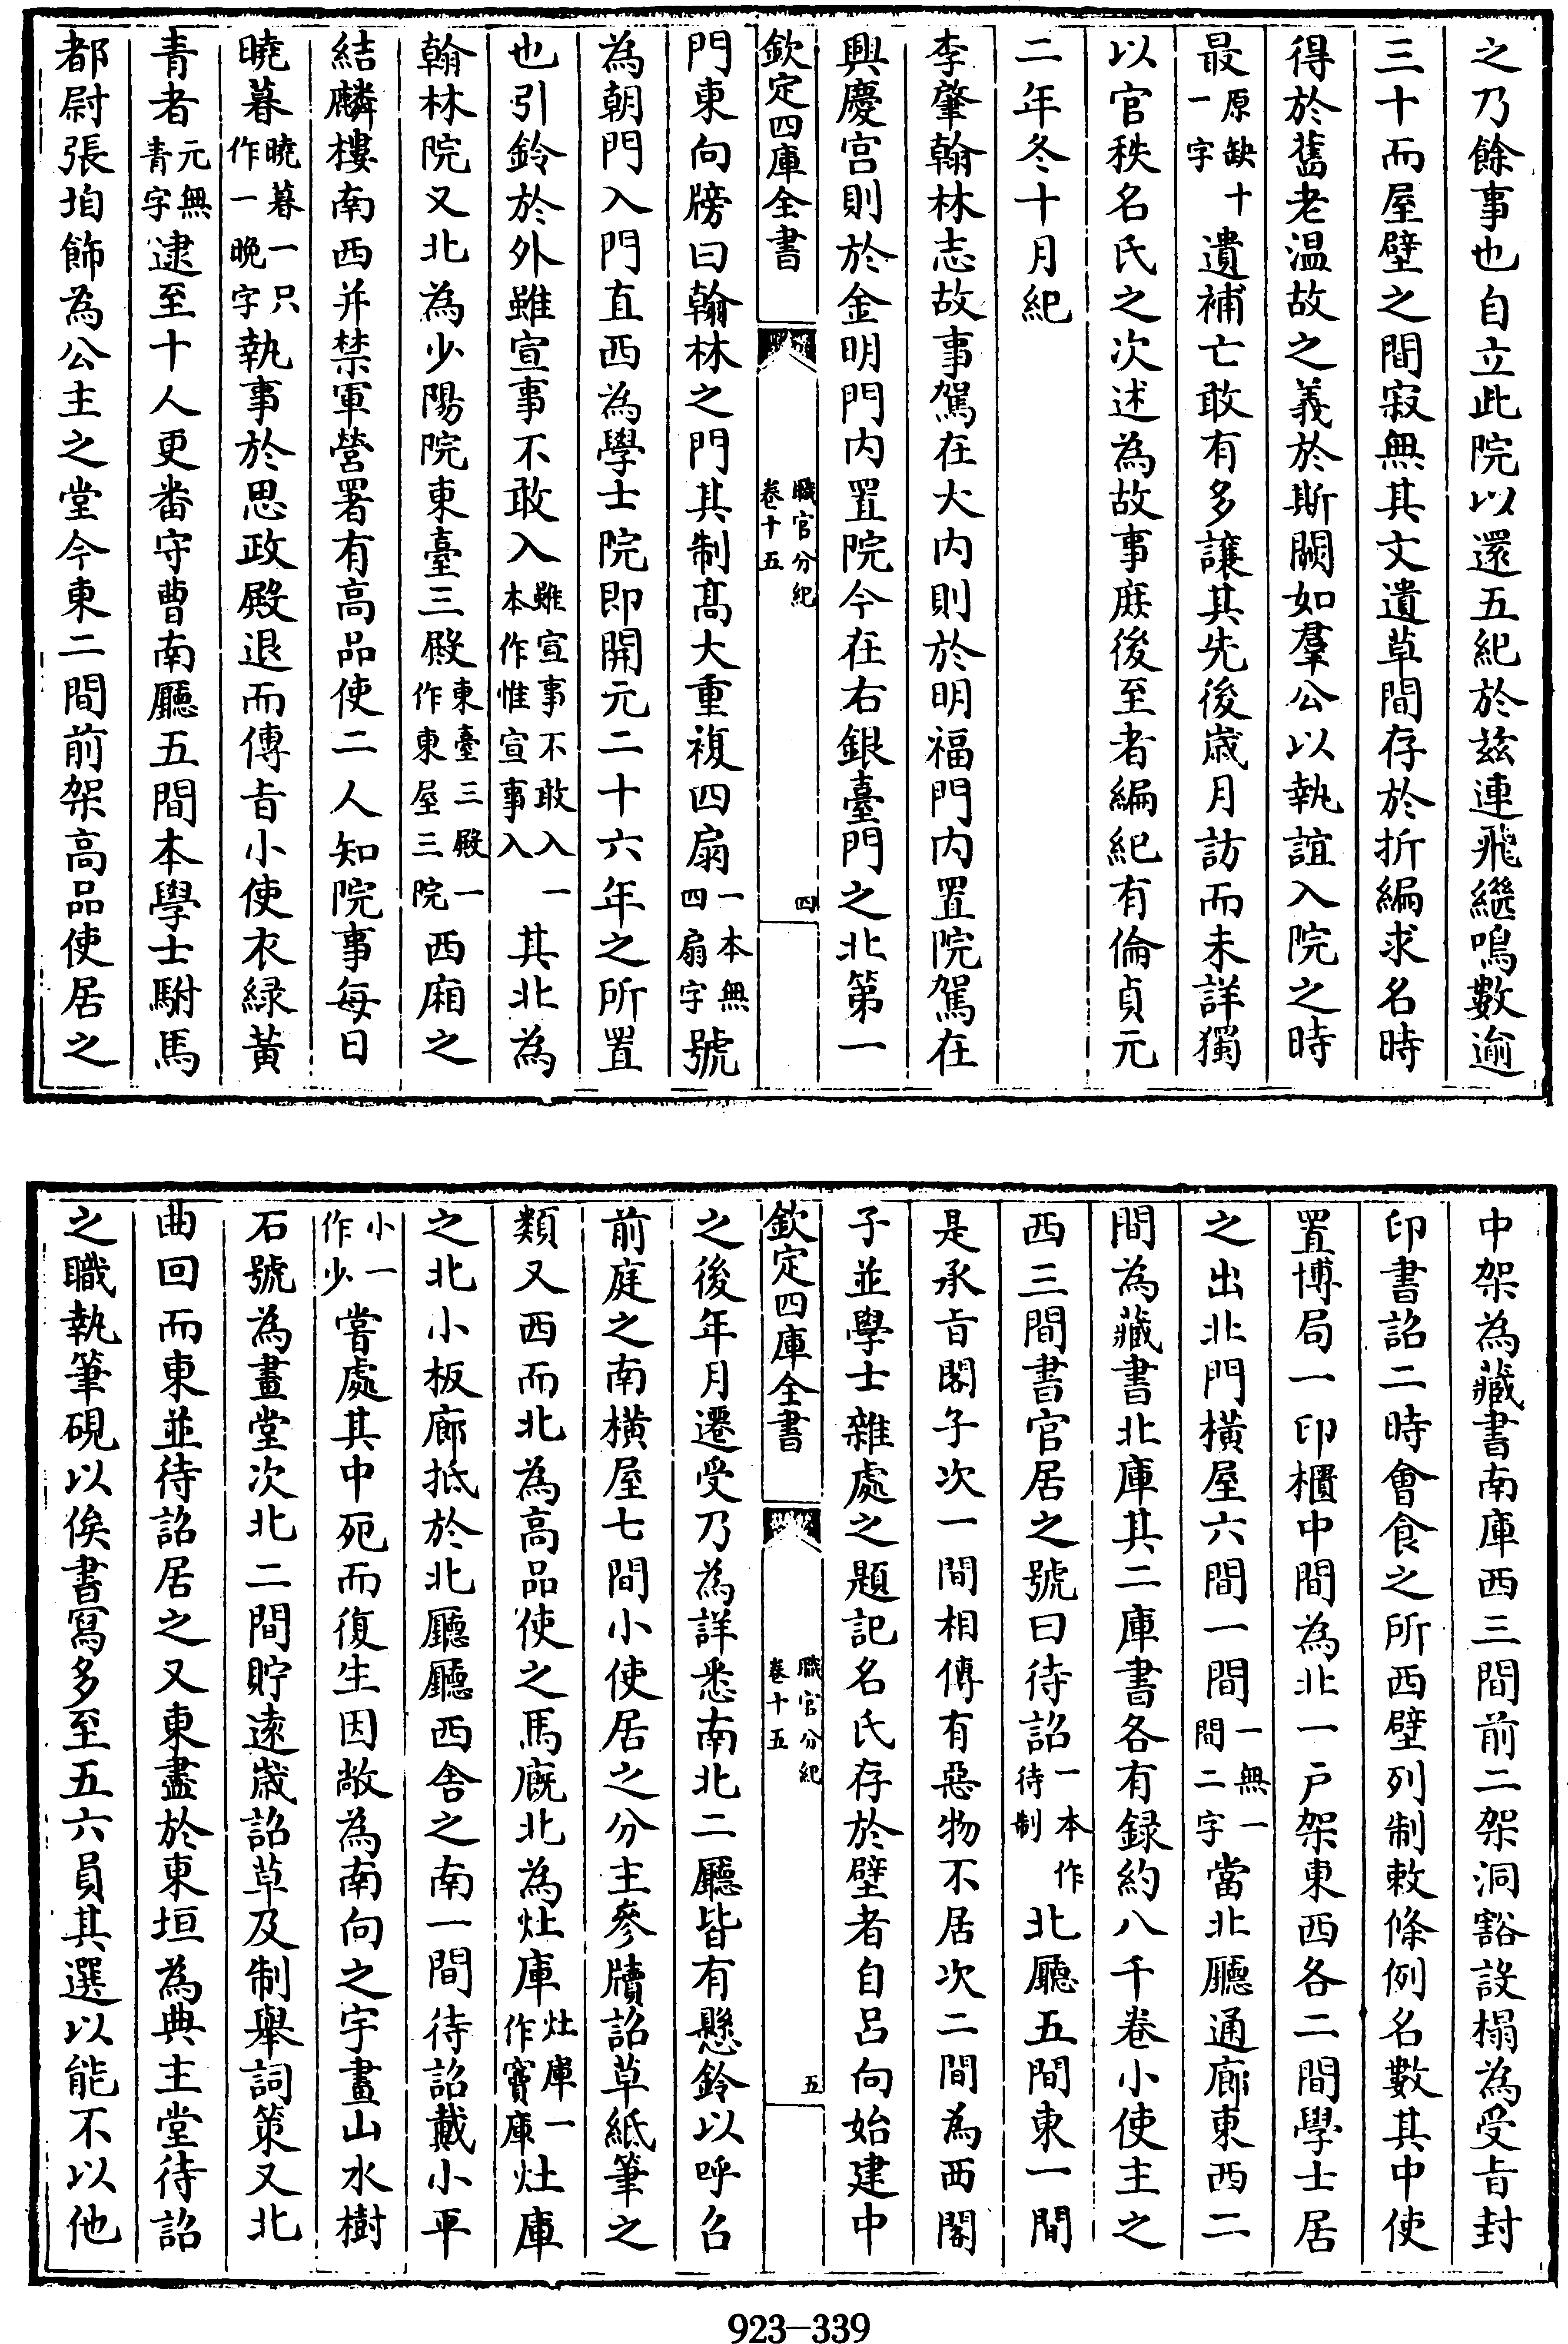 之乃餘事也自立此院以還五紀於兹連飛繼鳴數逾
三十而屋壁之間寂無其文遺草間存於折編求名時
得於舊老温故之義於斯闕如羣公以執誼入院之時
最原缺十一字遺補亡敢有多讓其先後歳月訪而未詳獨
以官秩名氏之次述為故事庶後至者編紀有倫貞元
二年冬十月紀
李肇翰林志故事駕在大内則於明福門内置院駕在
興慶宫則於金明門内置院今在右銀臺門之北第一
欽定四庫全書
職官分紀
卷十五
四
門東向牓曰翰林之門其制髙大重複四扇一本無四扇字號
為朝門入門直西為學士院即開元二十六年之所置
也引鈴於外雖宣事不敢入雖宣事不敢入一本作惟宣事入其北為
翰林院又北為少陽院東臺三殿東臺三殿一作東屋三院西廂之
結麟樓南西并禁軍營署有高品使二人知院事每日
曉暮曉暮一只作一晚字執事於思政殿退而傳㫖小使衣緑黄
青者元無青字逮至十人更番守曹南廳五間本學士駙馬
都尉張垍飾為公主之堂今東二間前架高品使居之
中架為藏書南庫西三間前二架洞豁設榻為受㫖封
印書詔二時會食之所西壁列制敕條例名數其中使
置博局一印櫃中間為北一户架東西各二間學士居
之出北門横屋六間一間一無一間二字當北廳通廊東西二
間為藏書北庫其二庫書各有録約八千卷小使主之
西三間書官居之號曰待詔一本作待制北廳五間東一間
是承㫖閣子次一間相傳有惡物不居次二間為西閣
子並學士雜處之題記名氏存於壁者自吕向始建中
欽定四庫全書
職官分紀
卷十五
五
之後年月遷受乃為詳悉南北二廳皆有懸鈴以呼召
前庭之南横屋七間小使居之分主參牘詔草紙筆之
類又西而北為高品使之馬廐北為灶庫灶庫一作寶庫灶庫
之北小板廊抵於北廳廳西舍之南一間待詔戴小平
小一作少嘗處其中死而復生因敞為南向之宇畫山水樹
石號為畫堂次北二間貯遠歳詔草及制舉詞策又北
曲回而東並待詔居之又東盡於東垣為典主堂待詔
之職執筆硯以俟書寫多至五六員其選以能不以他
923—339